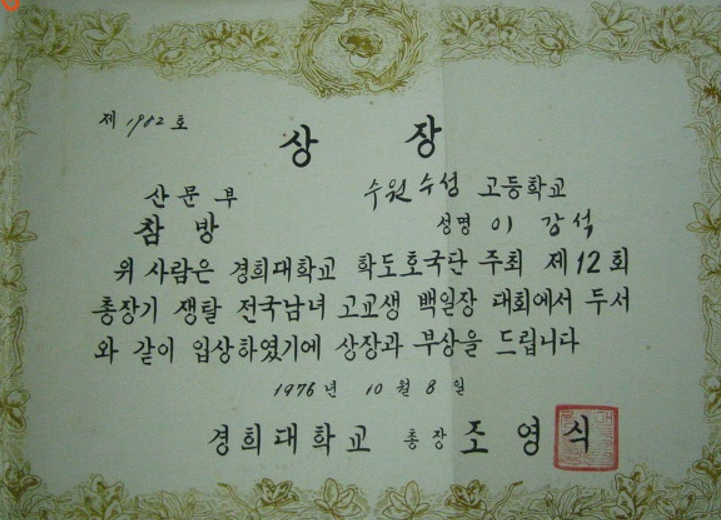 제 1982 호
상 장
산문부 수원수성 고등학교
참 방 성명 이 강석
위 사람은 경희대학교 학도호국단 주최 제12회
총장기 쟁탈 전국남녀 고교생 백일장 대회에서 두서
와 같이 입상하였기에 상장과 부상을 드립니다
1976년 10월 8일
경희대학교 총장 조영식